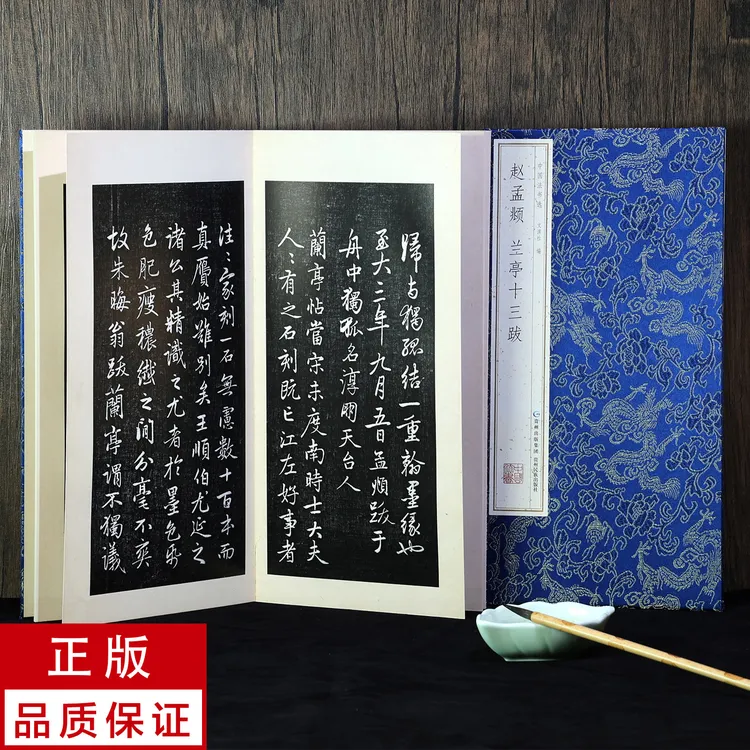 歸与獨孤結一重翰墨緣也
至大三年九月五日孟頫跋于
舟中獨孤名淳朋天台人
蘭亭帖當宋未度南時士大夫
人〻有之石刻既亡江左好事者
往〻家刻一石無慮數十百本而
真贗始難別矣王順伯尤延之
諸公其精識之尤者於墨色紙
色肥瘦穠纖之間分毫不爽
故朱晦翁跋蘭亭謂不獨議
赵孟頫 兰亭十三跋
贵州出版集团
贵州民族出版社
正版
品质保证